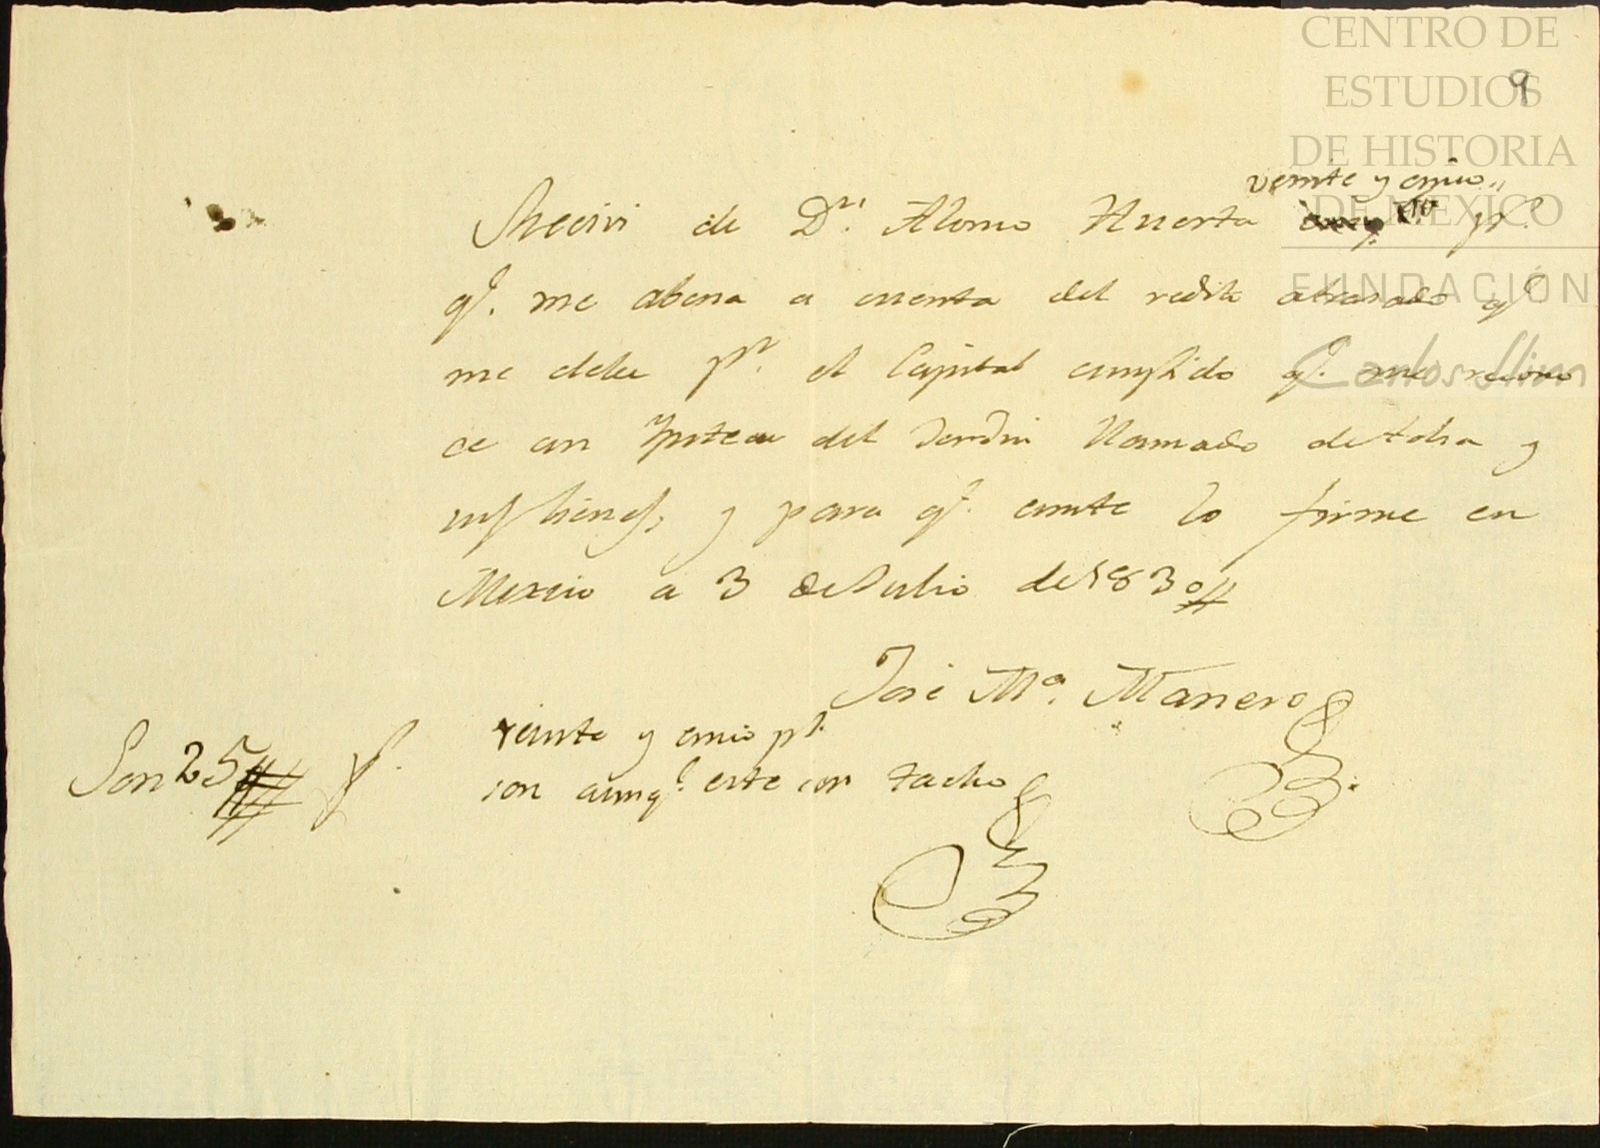 CENTRO DE
ESTUDIOS
DE HISTORIA
DE MEXICO
FUNDACIÓN
Carlos Slim
9
veinte y cinco
Recivi de Dn. Alonso Huerta ps.
qe. me abona a cuenta del redito atrasado qe.
me debe pr. el Capital cumplido qe. me recono
ce en Ypoteca del Jardin llamado de tolsa y
sus bienes, y para qe. conste lo firme en
Mexico a 3 de Julio de 1830
José Ma. Manero
veinte y cinco ps.
Son 25 ps.
son aunqe. este con tacho